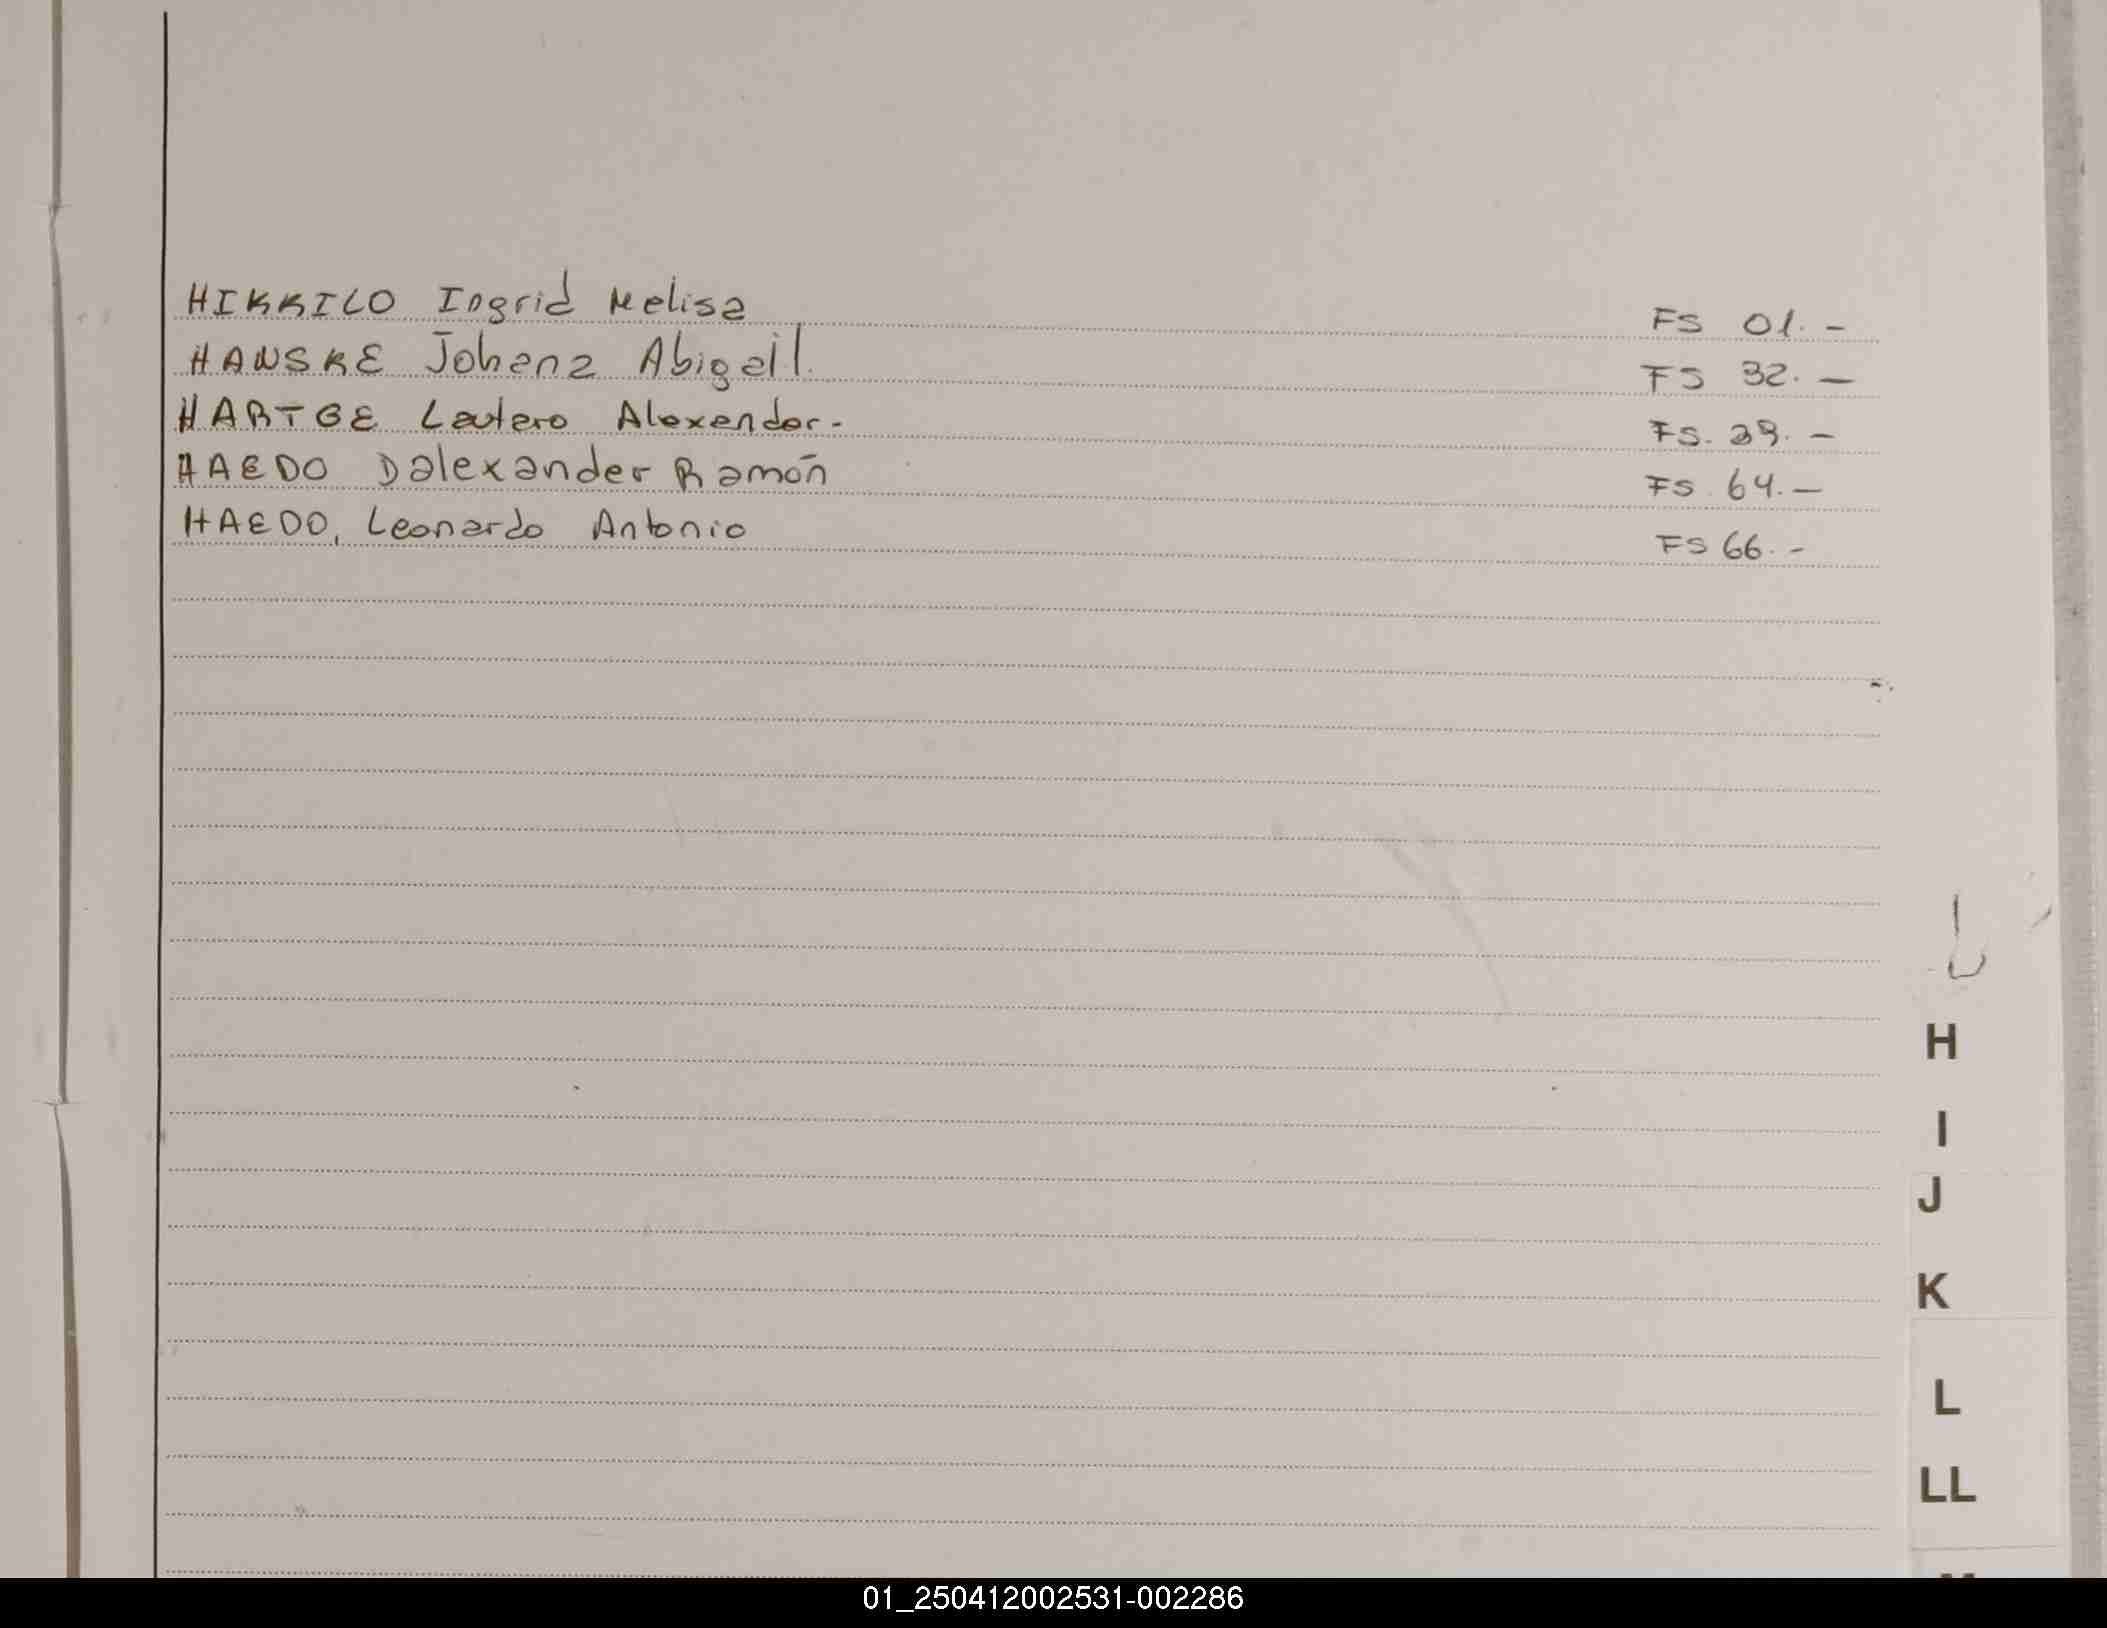 HIKKILO Ingrid Melisa FS 01.-
HANSKE Johana Abigail. FS 32.-
HARTGE Lautaro Alexander.- FS. 39.-
HAEDO Dalexander Ramón FS. 64.-
HAEDO, Leonardo Antonio FS 66.-
H
I
J
K
L
LL
01_250412002531-002286